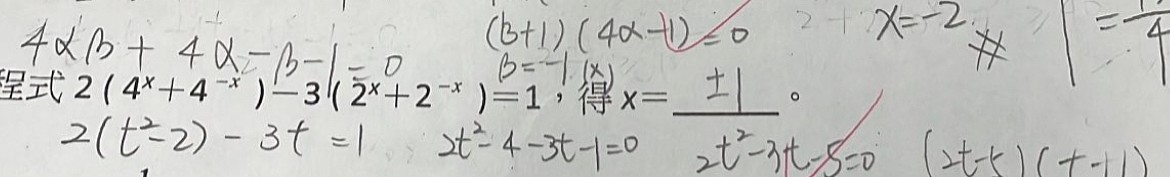 4αβ + 4α - β - 1 = 0
(β+1)(4α-1) = 0
β = -1 (x)
x = -2 #
程式 2(4ˣ+4⁻ˣ)-3(2ˣ+2⁻ˣ)=1，得 x= ±1 。
2(t²-2) - 3t = 1 2t²-4-3t-1=0 2t²-3t-5=0 (2t-5)(t+1)